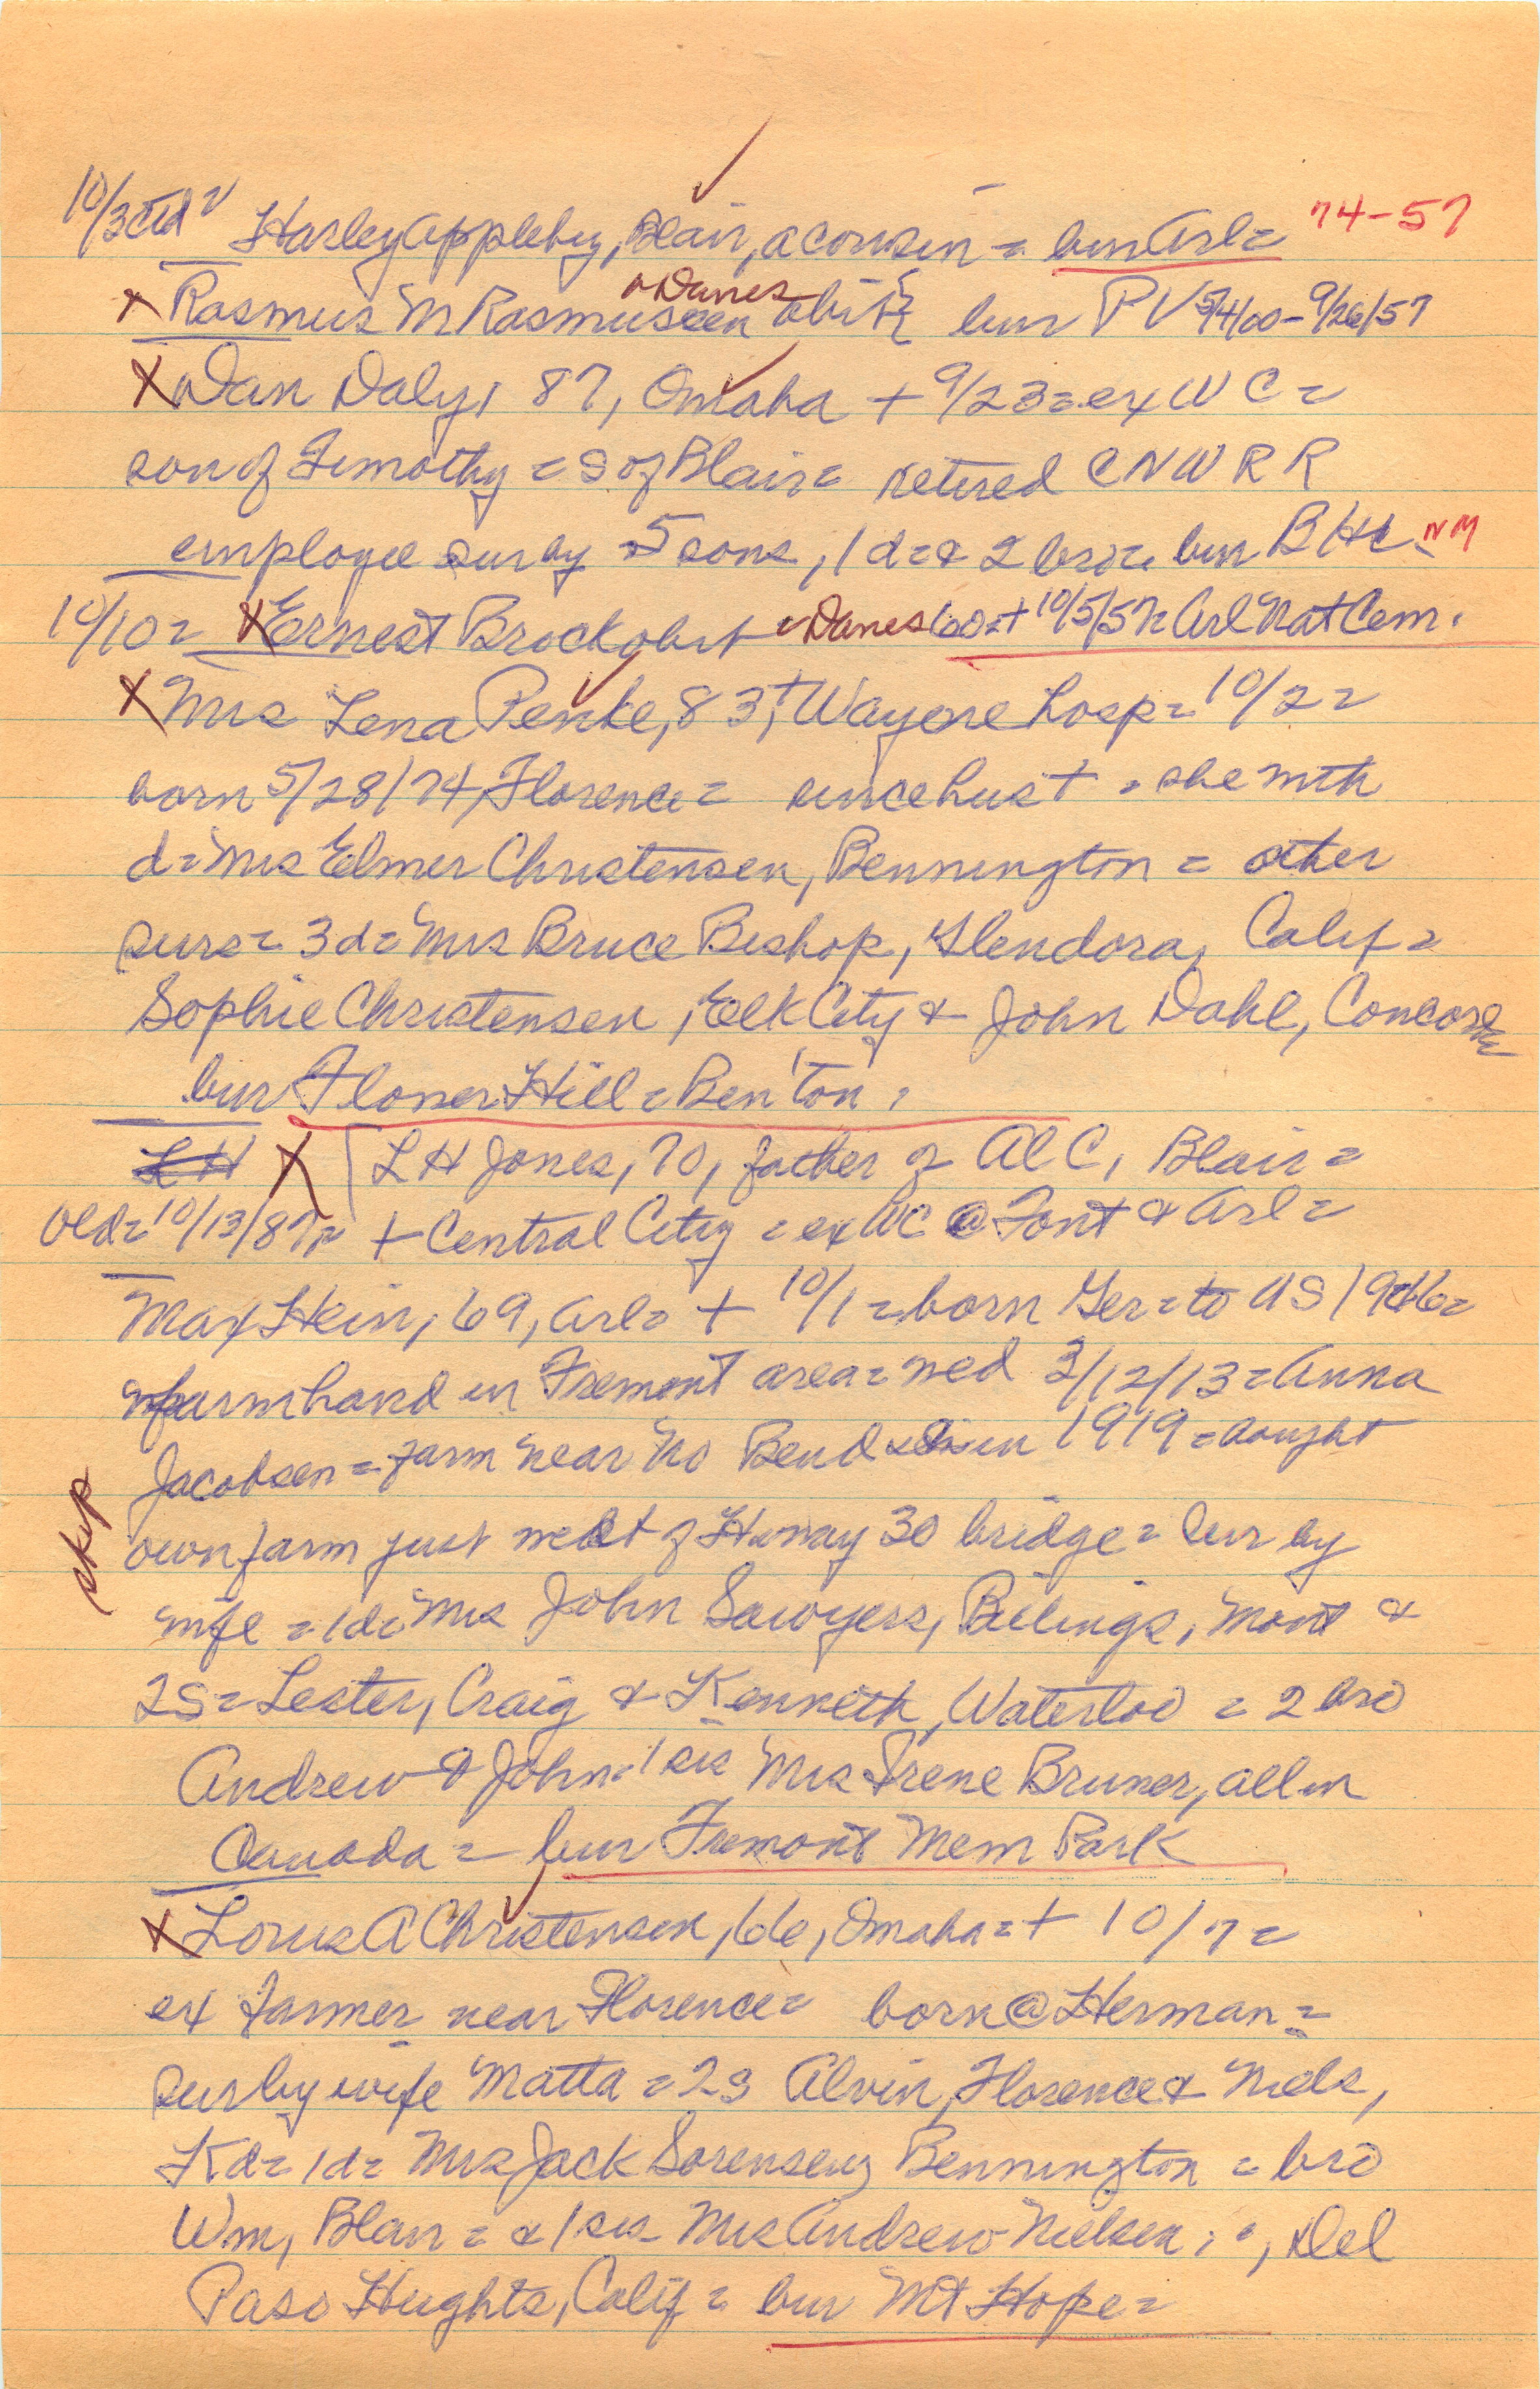 10/3 Harley Appleby, Blair, a cousin = bur Arl = 74-57
x Rasmus M Rasmussen =Danes obit bur PV 5/4/00 - 9/26/57
x Dan Daly, 87, Omaha + 9/23 = ex W C =
son of Timothy = S of Blair = retired C N W R R
employee sur by 5 sons, 1 d = & 2 bro = bur B/Hc NM
10/10 = x Ernest Brock obit =Danes 60 = + 10/5/57 = Arl Nat Cem.
x Mrs Lena Penke, 83, + Wayne hosp = 10/2 =
born 5/28/74, Florence = since hus + , she mth
d = Mrs Elmer Christensen, Bennington = other
surs = 3 d = Mrs Bruce Bishop, Glendora, Calif =
Sophie Christensen, Elk City & John Dahl, Concord =
bur Flower Hill = Ben'ton =
L H x [ L H Jones, 70, father of Al C, Blair =
old = 10/13/87 = + Central City = ex WC @ Font & Arl =
Max Hein, 69, Arl = + 10/1 = born Ger = to US 1906 =
farmhand in Fremont area = wed 3/12/13 = Anna
Jacobsen = farm near No Bend in 1919 = bought
own farm just west of Hiway 30 bridge = sur by
skip
wife = 1 d = Mrs John Sawyers, Billings, Mont &
2 S = Lester, Craig & Kenneth, Waterloo = 2 bro
Andrew & John = 1 sis Mrs Irene Bruner, all in
Canada = bur Fremont Mem Park
x Lorus A Christensen, 66, Omaha = + 10/7 =
ex farmer near Florence = born @ Herman =
sur by wife Matta = 2 s Alvin, Florence & Niels,
Kd = 1 d = Mrs Jack Sorensen, Bennington = bro
Wm, Blair = & 1 sis Mrs Andrew Nielsen, , Del
Paso Heights, Calif = bur Mt Hope =